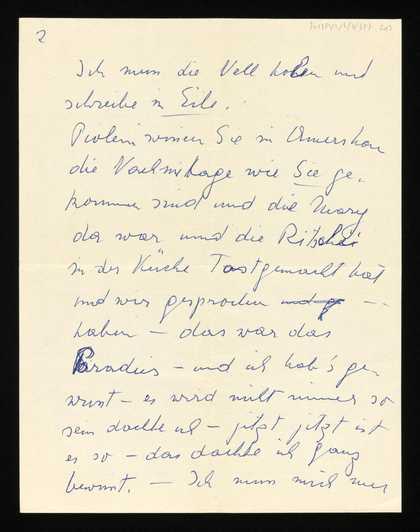 2
Ich muss die Nell holen und
schreibe in Eile.
wissen Sie in Amersham
die Nachmittage wie Sie ge-
kommen sind und die Mary
da war und die
in der Küche Toast gemacht hat
und wir gesprochen
haben – das war das
Paradies – und ich hab's ge-
wusst – es wird nicht immer so
sein dachte ich – jetzt jetzt ist
es so – das dachte ich ganz
bewusst. – Ich muss mich nur